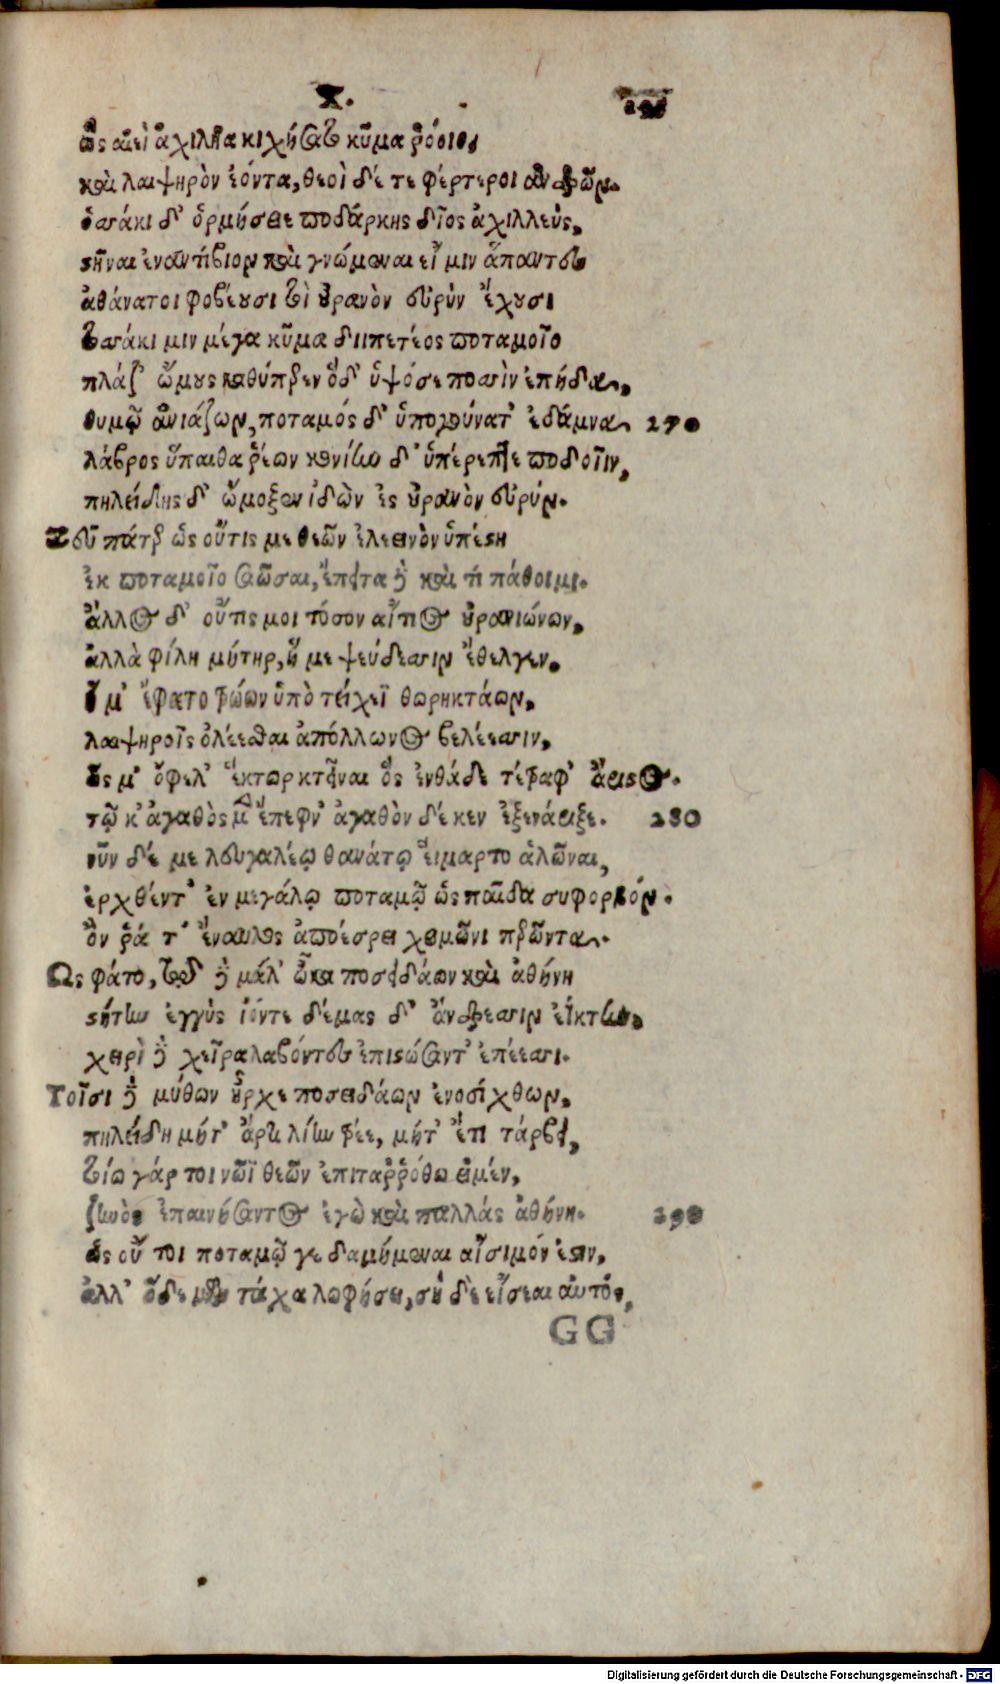 ὣς αἰεὶ ἀχιλῆα κιχήσατο κῦμα ῥόοιο,
καὶ λαιψηρὸν ἐόντα, θεοὶ δέ τε φέρτεροι ἀνδρῶν.
ὁσσάκι δ' ὁρμήσειε ποδάρκης δῖος ἀχιλλεὺς,
στῆναι ἐναντίβιον καὶ γνώμεναι εἴ μιν ἅπαντες
ἀθάνατοι φοβέουσι τοὶ οὐρανὸν εὐρὺν ἔχουσι
τοσσάκι μιν μέγα κῦμα διιπετέος ποταμοῖο
πλάζ' ὤμους καθύπερθεν ὅδ' ὑψόσε ποσσὶν ἐπήδα,
θυμῷ ἀνιάζων, ποταμός δ' ὑπογούνατ' ἐδάμνα 270
λάβρος ὕπαιθα ῥέων κονίην δ' ὑπέρεπτε ποδοῖιν,
πηλείδης δ' ᾤμοξεν ἰδὼν ἐς οὐρανὸν εὐρύν.
Ζεῦ πάτερ ὡς οὔτις με θεῶν ἐλεεινὸν ὑπέστη
ἐκ ποταμοῖο σαῶσαι, ἔπειτα δὲ καὶ τί πάθοιμι.
ἄλλος δ' οὔτις μοι τόσον αἴτιος οὐρανιώνων,
ἀλλὰ φίλη μήτηρ, ἥ με ψεύδεσσιν ἔθελγεν.
ἥ μ' ἔφατο τρώων ὑπὸ τείχεϊ θωρηκτάων,
λαιψηροῖς ὀλέεσθαι ἀπόλλωνος βελέεσσιν,
ὥς μ' ὄφελ' ἕκτωρ κτεῖναι ὃς ἐνθάδε τέτραφ' ἄριστος.
τῷ κ' ἀγαθὸς μὲν ἔπεφν' ἀγαθὸν δέ κεν ἐξενάριξε. 280
νῦν δέ με λευγαλέῳ θανάτῳ εἵμαρτο ἁλῶναι,
ἐρχθέντ' ἐν μεγάλῳ ποταμῷ ὡς παῖδα συφορβόν.
ὅν ῥά τ' ἔναυλος ἀποέρσει χειμῶνι περῶντα.
Ως φάτο, τῷ δὲ μάλ' ὦκα ποσειδάων καὶ ἀθήνη
στήτην ἐγγὺς ἰόντε δέμας δ' ἄνδρεσσιν ἐΐκτην,
χειρὶ δὲ χεῖρα λαβόντες ἐπιστώσαντ' ἐπέεσσι.
Τοῖσι δὲ μύθων ἦρχε ποσειδάων ἐνοσίχθων,
πηλείδη μήτ' ἄρτι λίην τρέε, μήτ' ἔτι τάρβει,
τοίω γάρ τοι νῶϊ θεῶν ἐπιταῤῥόθω εἰμέν,
ζηνὸς ἐπαινήσαντος ἐγὼ καὶ παλλάς ἀθήνη. 290
ὡς οὔ τοι ποταμῷ γε δαμήμεναι αἴσιμόν ἐστιν,
ἀλλ' ὅδε μὲν τάχα λωφήσει, σὺ δὲ εἴσεαι αὐτός,
GG
Digitalisierung gefördert durch die Deutsche Forschungsgemeinschaft - DFG